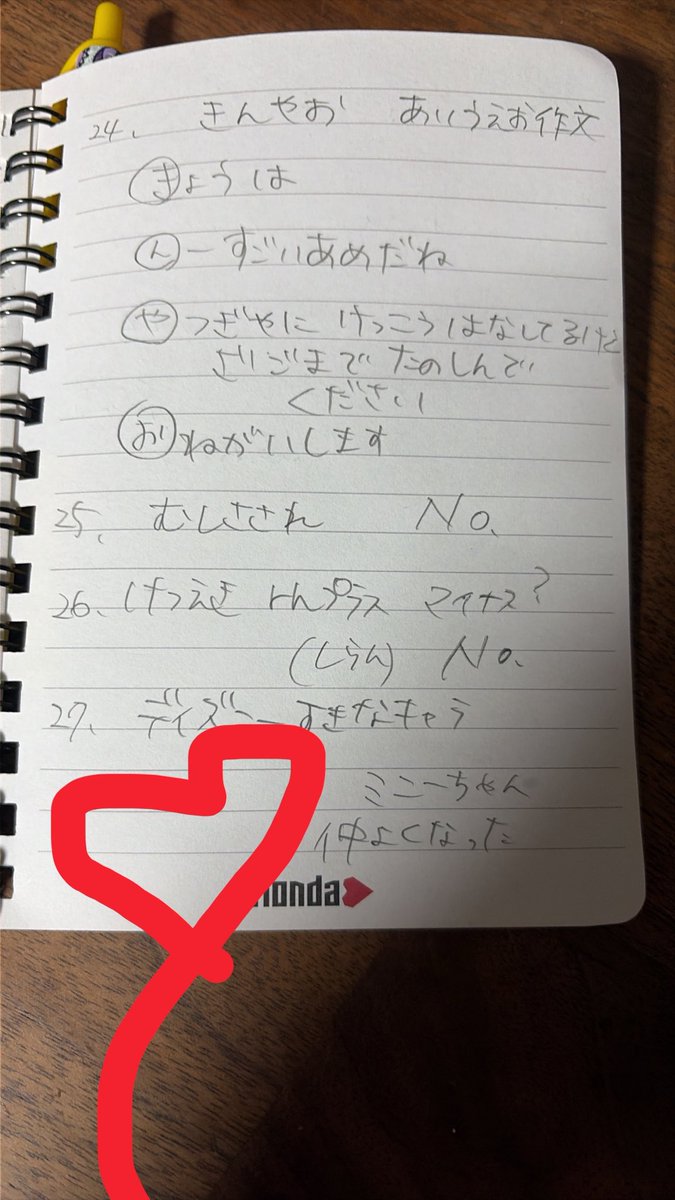 24、 きんやお あいうえお作文
きょうは
んーすごいあめだね
やつぎやに けっこうはなしてるけど
さいごまで たのしんで
ください
おねがいします
25、 むしさされ No.
26、けつえき rhプラス マイナス?
(しらん) No.
27、 ディズニーすきなキャラ
ミニーちゃん
仲よくなった
onda